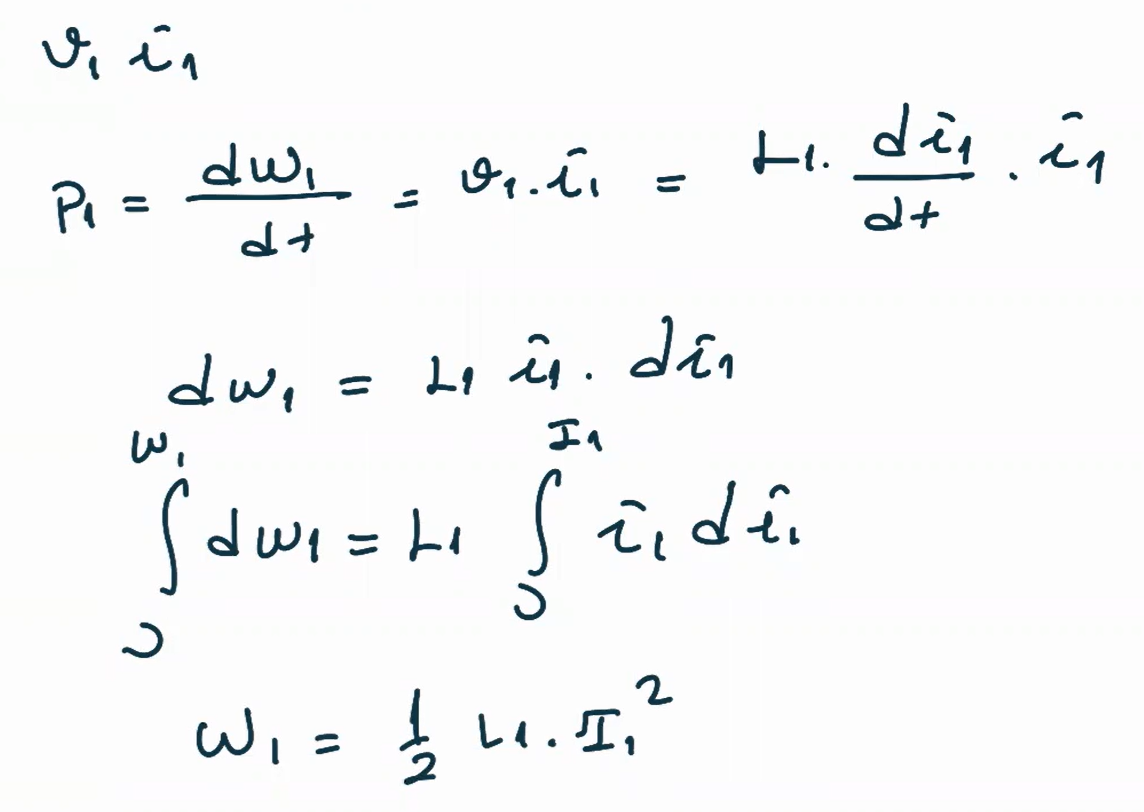 v₁ i₁
P₁ = dw₁/dt = v₁.i₁ = L₁. di₁/dt . i₁
dw₁ = L₁ i₁. di₁
∫₀^W₁ dw₁ = L₁ ∫₀^I₁ i₁ di₁
W₁ = 1/2 L₁. I₁²